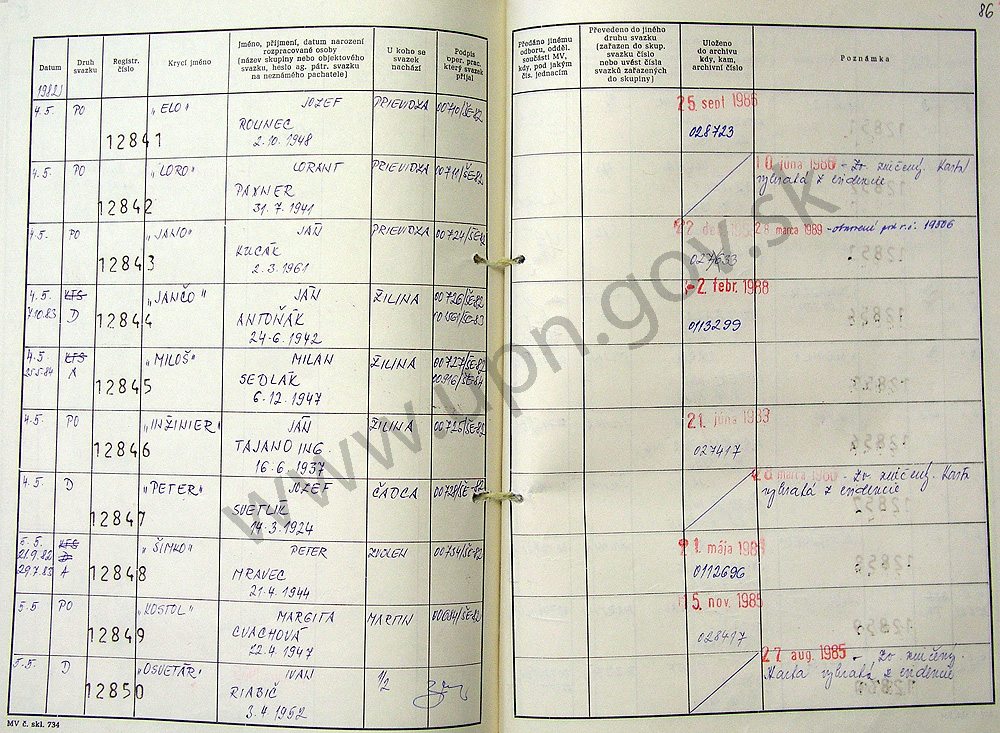 86
Datum
Druh
svazku
Registr.
číslo
Krycí jméno
Jméno, příjmení, datum narození
rozpracované osoby
(název skupiny nebo objektového
svazku, heslo ag. pátr. svazku
na neznámého pachatele)
U koho se
svazek
nachází
Podpis
oper. prac.
který svazek
přijal
Předáno jinému
odboru, odděl.
součásti MV,
kdy, pod jakým
čís. jednacím
Převedeno do jiného
druhu svazku
(zařazen do skup.
svazku číslo
nebo uvést čísla
svazků zařazených
do skupiny)
Uloženo
do archivu
kdy, kam,
archivní číslo
Poznámka
1982
4.5. PO 12841 "ELO" JOZEF PRIEVIDZA 00710/ŠE-82
ROLINEC
2.10.1948
25. sept 1986
028723
4.5. PO 12842 "LORO" LORANT PRIEVIDZA 00711/ŠE-82
PAXNER
31.7.1941
10. júna 1986 - Zv. zničený. Karta
vybratá z evidencie
4.5. PO 12843 "JANO" JÁN PRIEVIDZA 00724/ŠE-82
KUCÁK
2.3.1961
28. marca 1989
027633
4.5. KTS 12844 "JANČO" JÁN ŽILINA 00726/ŠE-82
7.10.83 D ANTOŇÁK
24.6.1942
-2. febr. 1988
0113299
4.5. KTS 12845 "MILOŠ" MILAN ŽILINA 00727/ŠE-82
25.5.84 A SEDLÁK 00916/ŠE-84
6.12.1947
4.5. PO 12846 "INŽINIER" JÁN ŽILINA 00725/ŠE-82
TAJANO ING.
16.6.1937
21. júna 1983
027417
4.5. D 12847 "PETER" JOZEF ČADCA 00728/ŠE-82
SVETLÍK
14.3.1924
Zv. zničený. Karta
vybratá z evidencie
5.5. KTS 12848 "ŠIMKO" PETER ZVOLEN 00734/ŠE-82
21.9.82 D
29.7.83 A MRAVEC
21.4.1944
mája
0112696
5.5. PO 12849 "KOSTOL" MARGITA MARTIN
CVACHOVÁ
22.4.1947
5. nov. 1985
028417
5.5. D 12850 "OSVETÁR" IVAN 1/2
RIABIČ
3.4.1952
27. aug. 1985 - Zv. zničený.
Karta vybratá z evidencie
MV č. skl. 734
www.upn.gov.sk